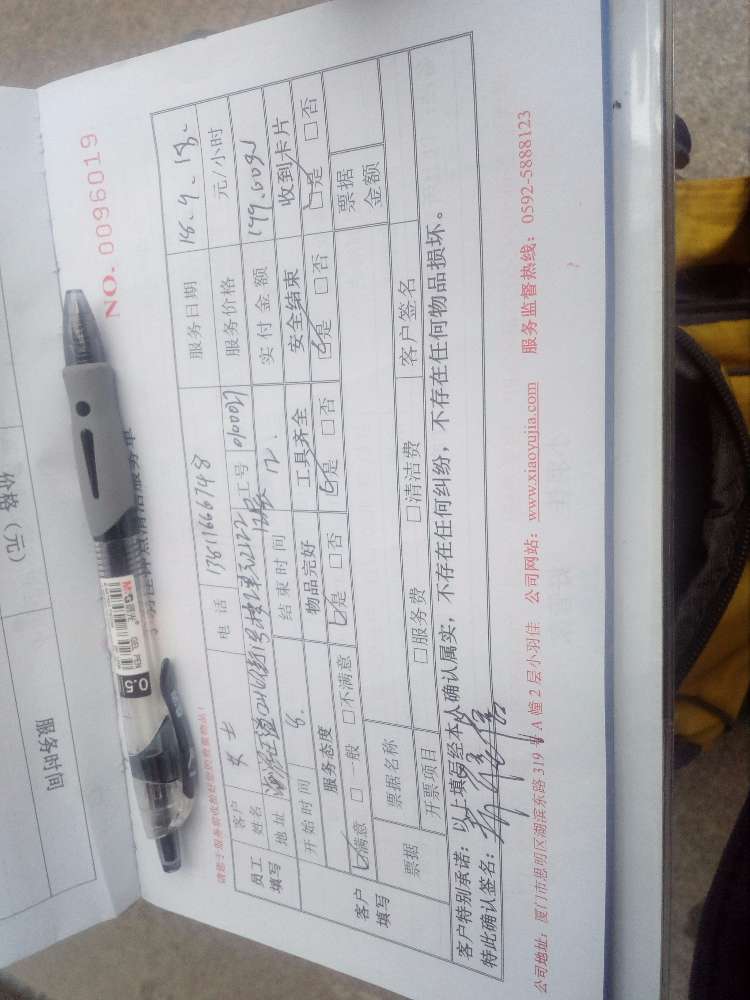 价格（元）
服务时间
NO. 0096019
M&G 晨光
GEL PEN
0.5
员工填写
客户姓名 女士 电话 13811666748 服务日期 18.9.18.
地址 工号 服务价格 元/小时
开始时间 8. 结束时间 12. 实付金额
客户填写
服务态度 物品完好 工具齐全 安全结束 收到卡片
☑满意 □一般 □不满意 ☑是 □否 ☑是 □否 ☑是 □否 ☑是 □否
票据 票据名称 票据金额
开票项目 □服务费 □清洁费 客户签名
客户特别承诺：以上填写经本人确认属实，不存在任何纠纷，不存在任何物品损坏。
特此确认签名：
公司地址：厦门市思明区湖滨东路 319 号 A 幢 2 层小羽佳 公司网站：www.xiaoyujia.com 服务监督热线：0592-5888123